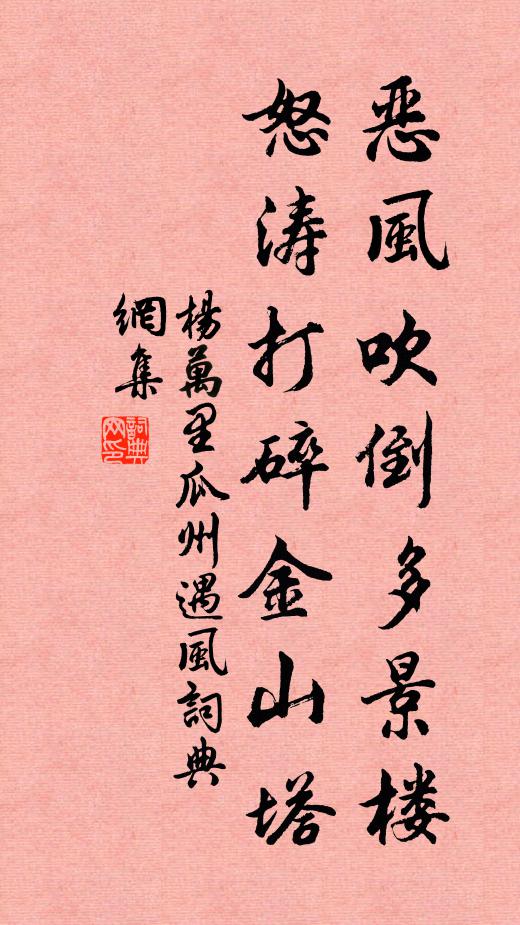 恶風吹倒多景楼
怒涛打碎金山塔
楊萬里瓜州遇風詞典
網集
詞典網印